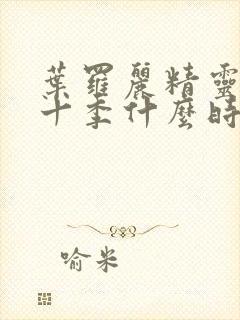 葉羅麗精靈
十季什麼時
喻米